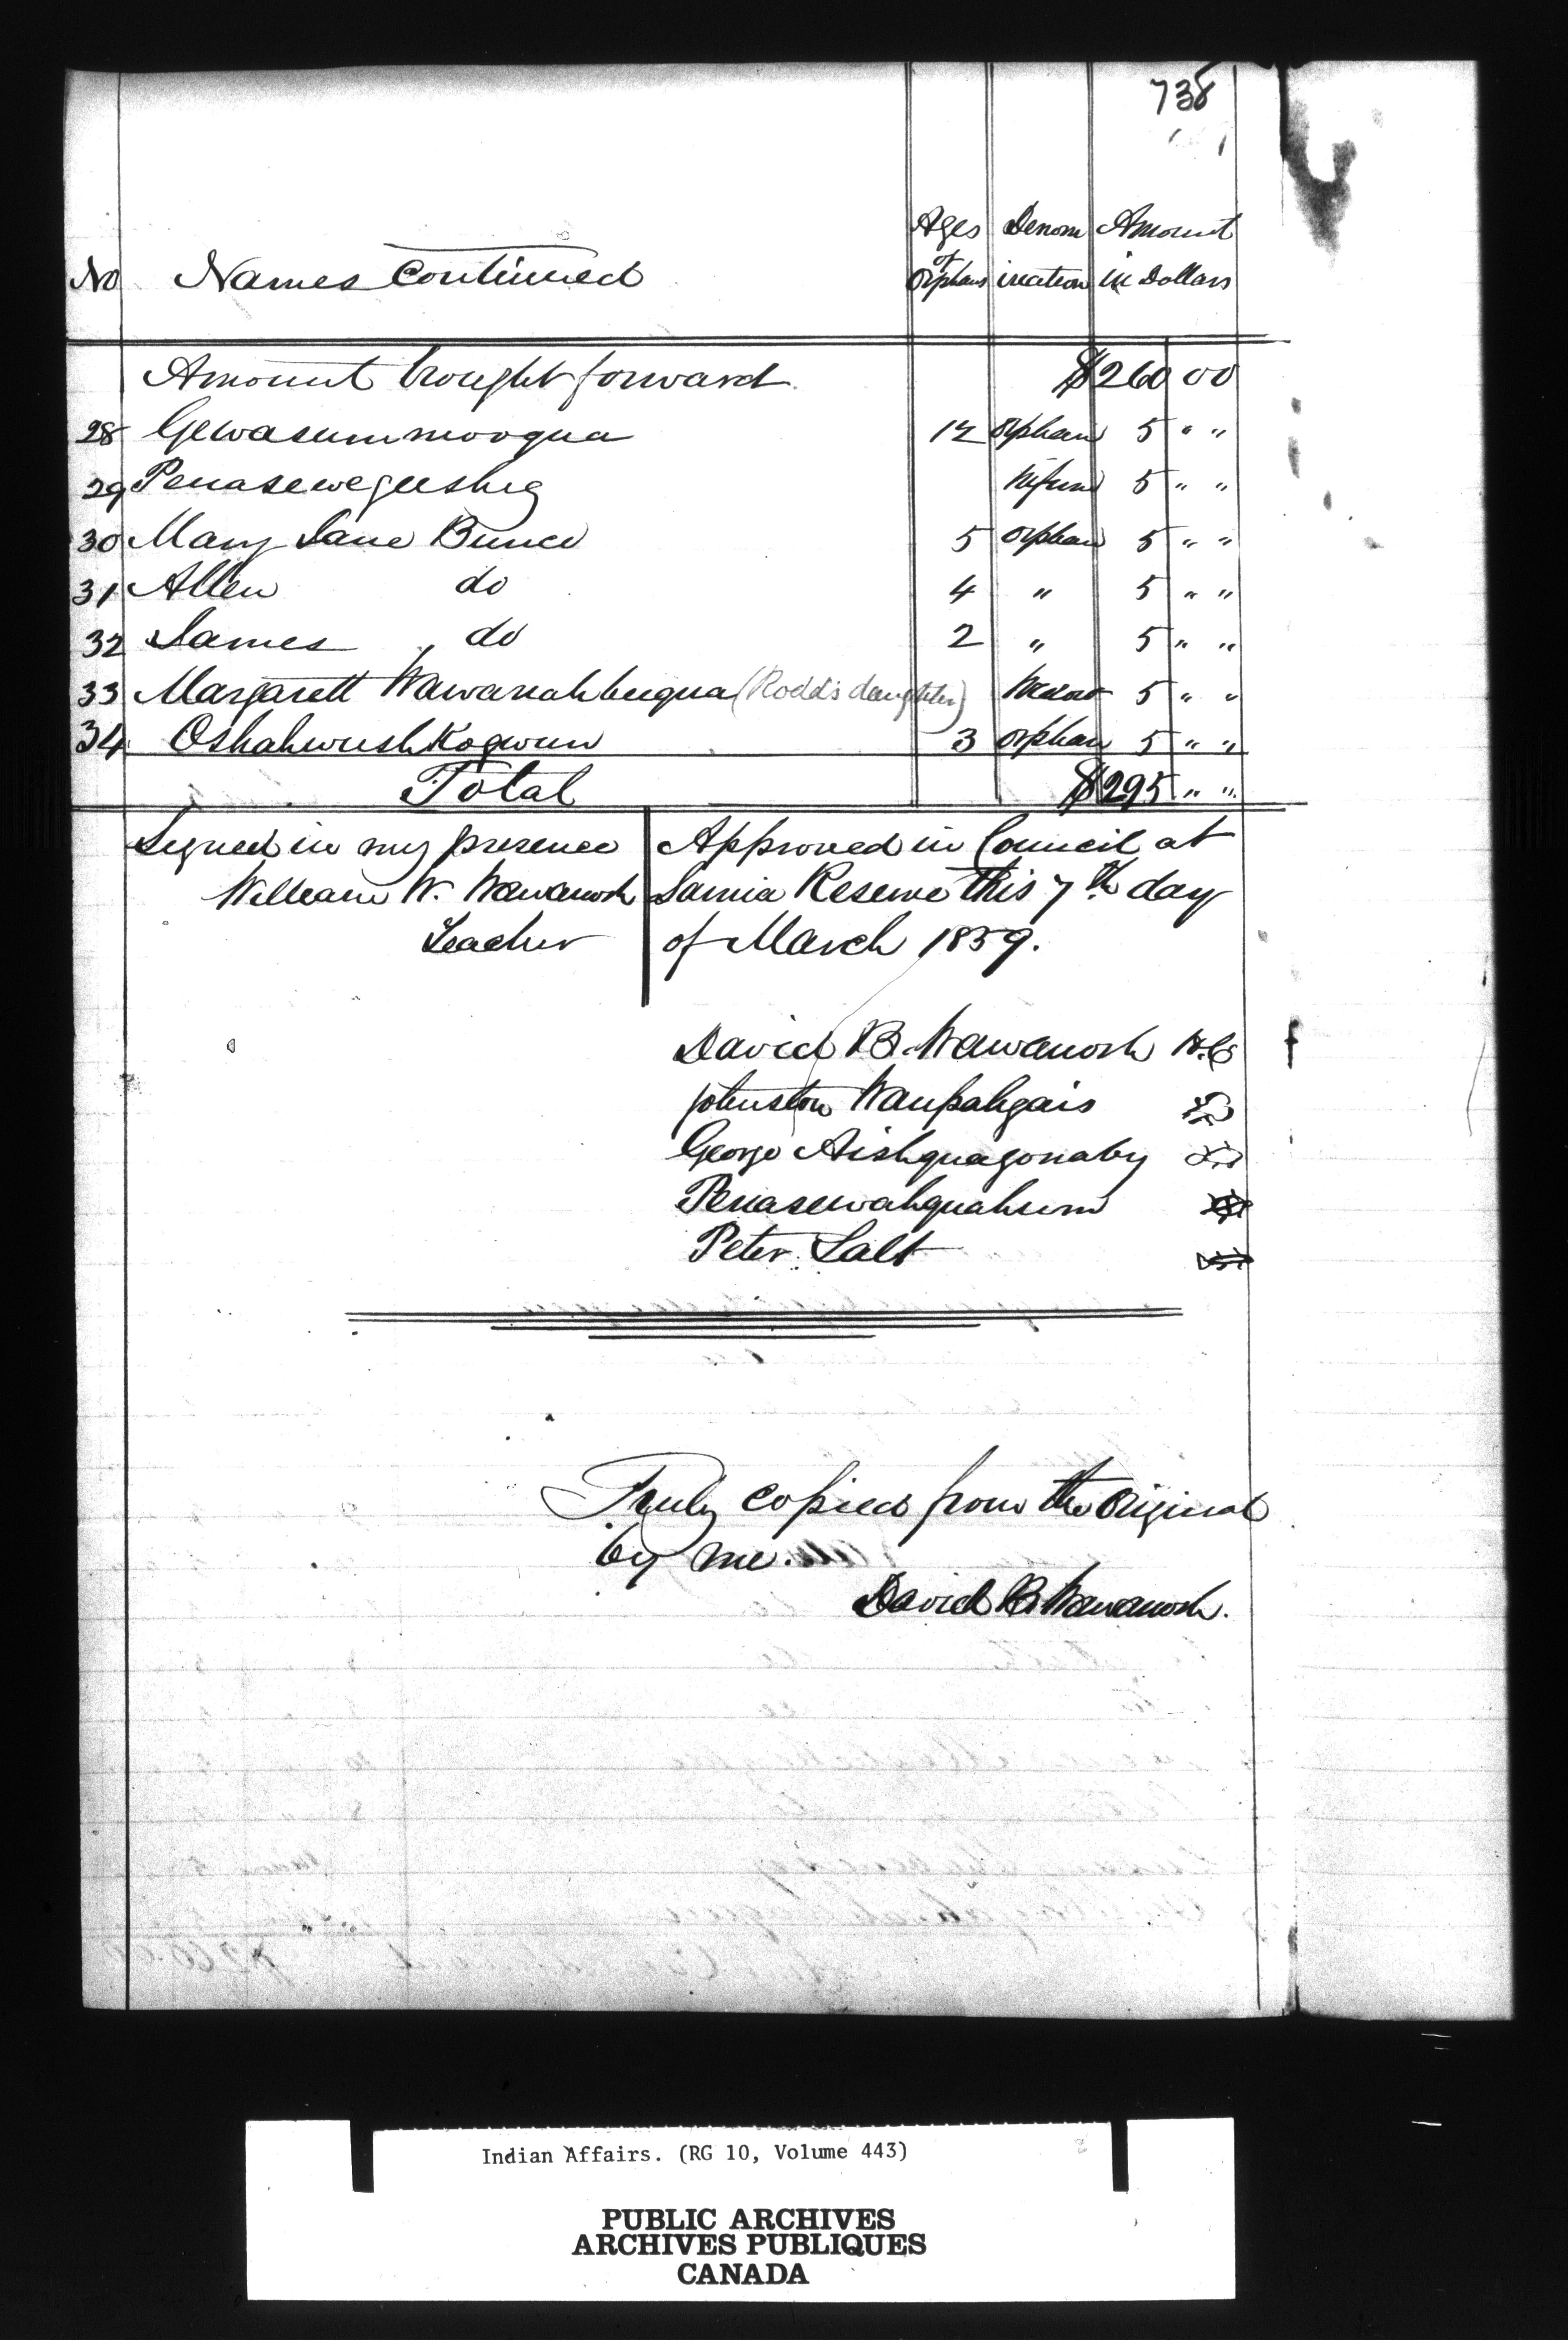 738
Ages Denom Amount
No Names Continued of Orphans ination in Dollars
Amount brought forward $260 00
28 Gewasummooqua 12 orphan 5 " "
29 Penasewegeeshig Infirm 5 " "
30 Mary Jane Bunce 5 orphan 5 " "
31 Allen do 4 " 5 " "
32 James do 2 " 5 " "
33 Margarett Wawanahbeequa (Rodd's daughter) Widow 5 " "
34 Oshahwushkogwun 3 orphan 5 " "
Total $295 " "
Signed in my presence
William W. Wawanosh
Teacher
Approved in Council at
Sarnia Reserve this 7th day
of March 1859.
David B. Wawanosh
Johnston Waupahgais
George Aishquagonaby
Penasewahquahum
Peter Salt
Truly copied from the Original
by me.
David B Wawanosh.
Indian Affairs. (RG 10, Volume 443)
PUBLIC ARCHIVES
ARCHIVES PUBLIQUES
CANADA